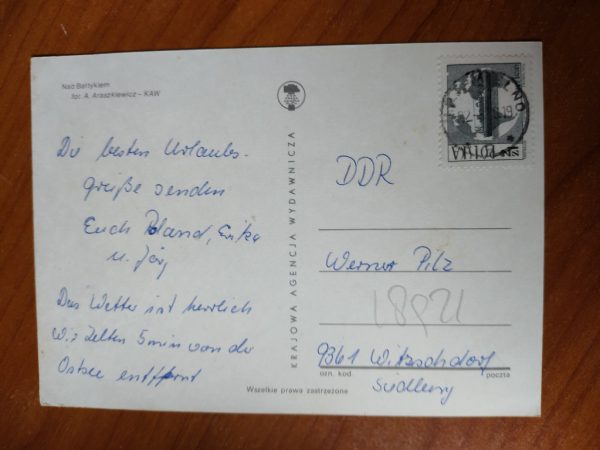 Nad Bałtykiem
fot. A. Araszkiewicz – KAW
Die besten Urlaubs-
grüße senden
Euch Roland, Erika
u. Jörg
Das Wetter ist herrlich
Wir Zelten 5 min von der
Ostsee entfernt
KRAJOWA AGENCJA WYDAWNICZA
POLSKA
DDR
Werner Pilz
9361 Witzschdorf
ozn. kod. poczta
Siedlung
Wszelkie prawa zastrzeżone